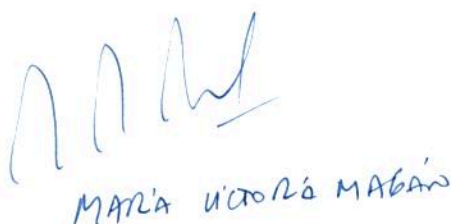 MARÍA VICTORIA MAGÁN